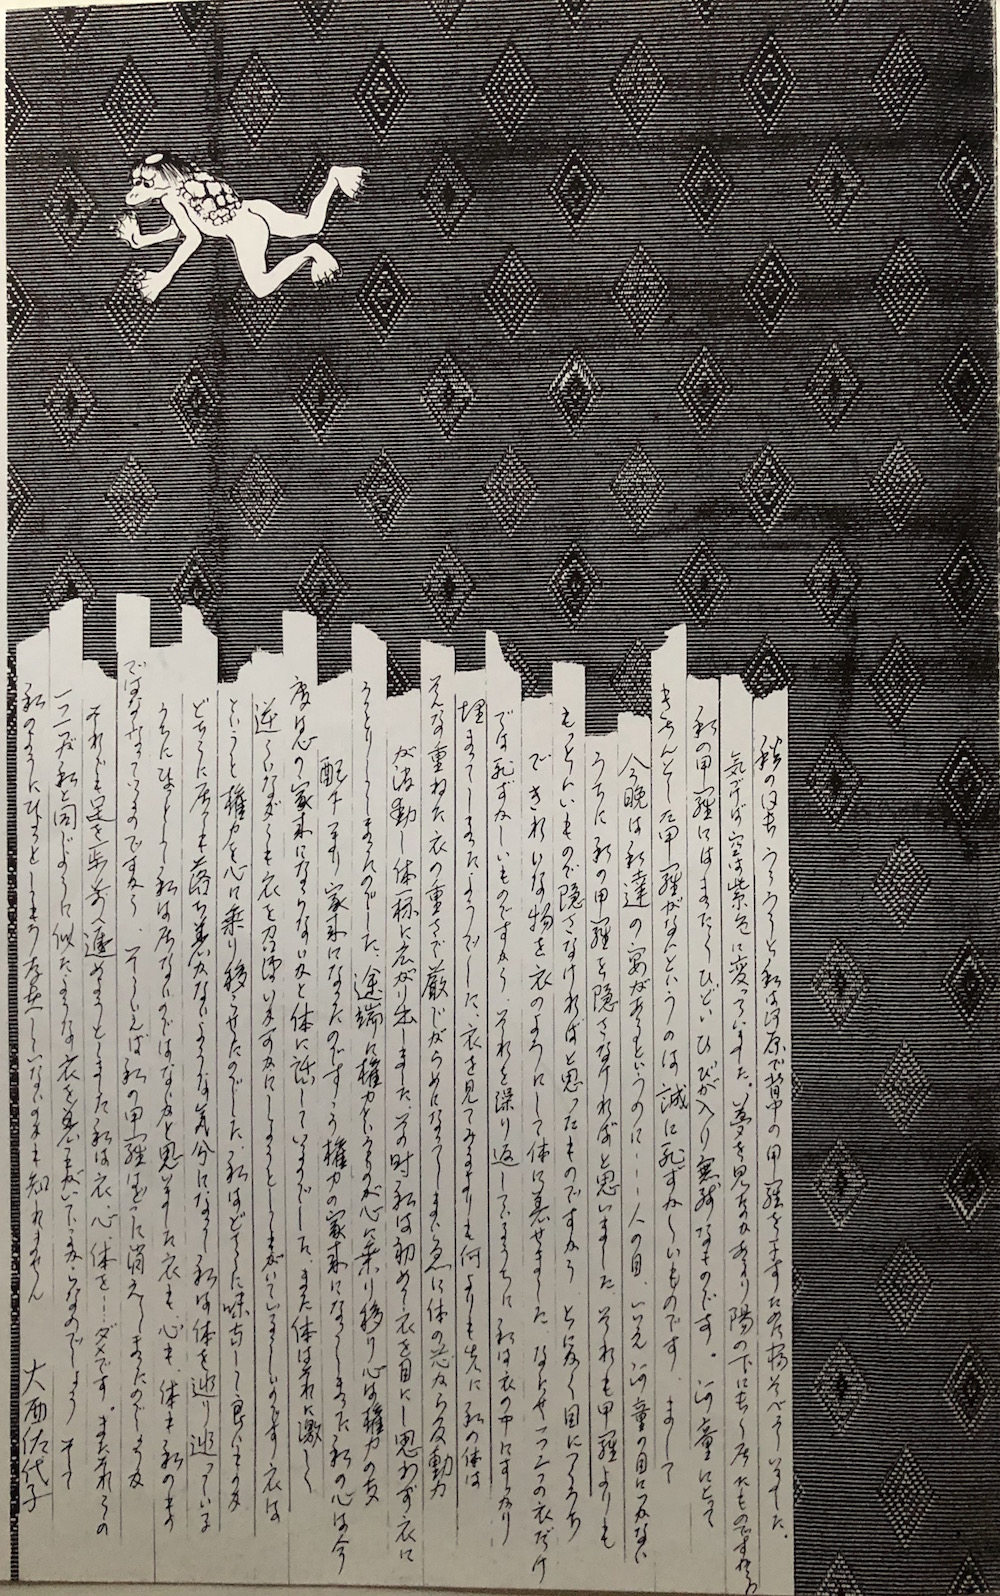 秋の日長 うつうつと私は河原で背中の甲羅をますため寝そべっていました。
気付けば空は紫色に変っていました。夢を見ながあまり陽の下にも長く居たものですから
私の甲羅にはまったくひどいひびが入り無残なものです。河童にとって
きちんとした甲羅がないというのは誠に恥ずかしいものです まして
今晩は私達の宴があるというのに… 人の目、いえ河童の目につかない
うちに私の甲羅を隠さなければと思いました それも甲羅よりも
もっといいもので隠さなければと思ったものですから とにかく目につくあ
できれいな物を衣のようにして体に着せました。なにせ一つ二つの衣だけ
では恥ずかしいものですから、それを繰り返しているうちに私は衣の中にすっかり
埋まってしまったようでした、衣を見てみるよりも何よりも先に私の体は
そんな重ねた衣の重さで厳じがらめになってしまい急に体の芯から反動力
が波動し体一杯に広がり出しました。その時私は初めて衣を目にし思わず衣に
うっとりしてしまったのでした、途端に権力というものが心に乗り移り心は権力の支
配下 つまり家来になったのです。もう権力の家来になってしまった私の心は今
度は心の家来にならないかと体に話しているようでした、また体はそれに激しく
逆らいながらも衣を召使いますかにしようとしてもがいているらしいのです 衣は
というと権力を心に乗り移らせたのでした、私はどちらに味方して良いものか
どちらに居ても落ち着かないような気分になって私は体を巡り巡っている
うちにひょっとして私は居ないのではないかと思いました 衣も、心も、体も私のま
ではなくなっているのですから、そういえば私の甲羅はどこに消えてしまったのでしょうか
それでも足を歩前へ進めようとしました 私は衣、心、体を……ダメです。またそれらの
一つ一つが私と同じように似たような衣を着てもがいているからなのでしょう そして
私のようにひょっとしたら存在していないのかも知れません 大西佐代子